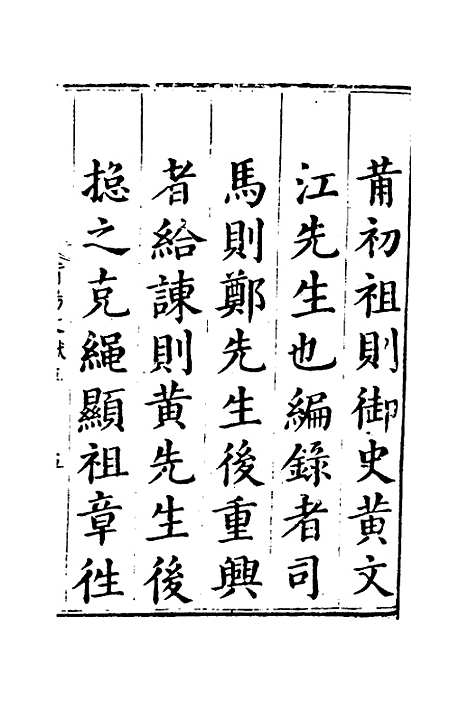 莆初祖則御史黄文
江先生也編錄者司
馬則鄭先生後重興
者給諫則黄先生後
摠之克繩顯祖章徃